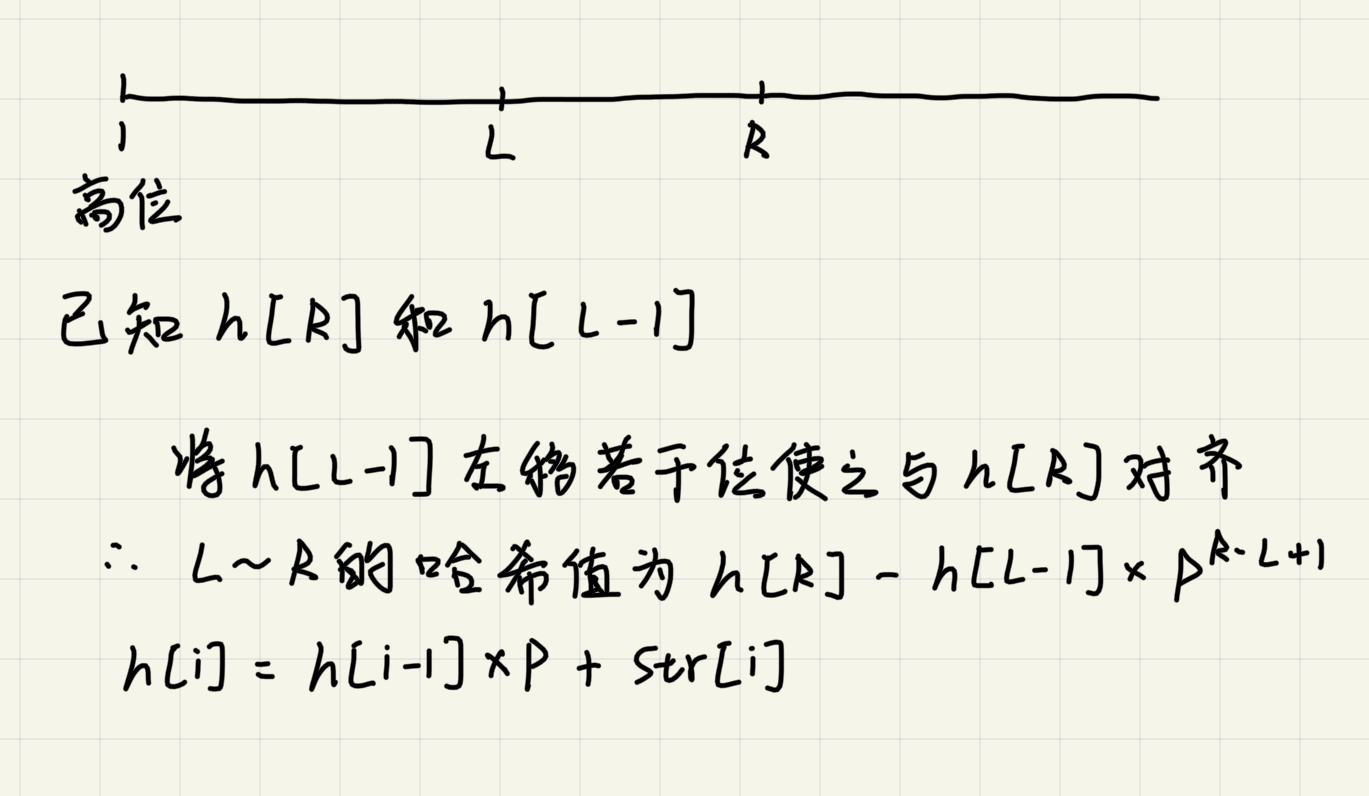 1 L R
高位
已知 h[R] 和 h[L-1]
将 h[L-1] 左移若干位使之与 h[R] 对齐
∴ L~R 的哈希值为 h[R] - h[L-1] × p^{R-L+1}
h[i] = h[i-1] × P + str[i]